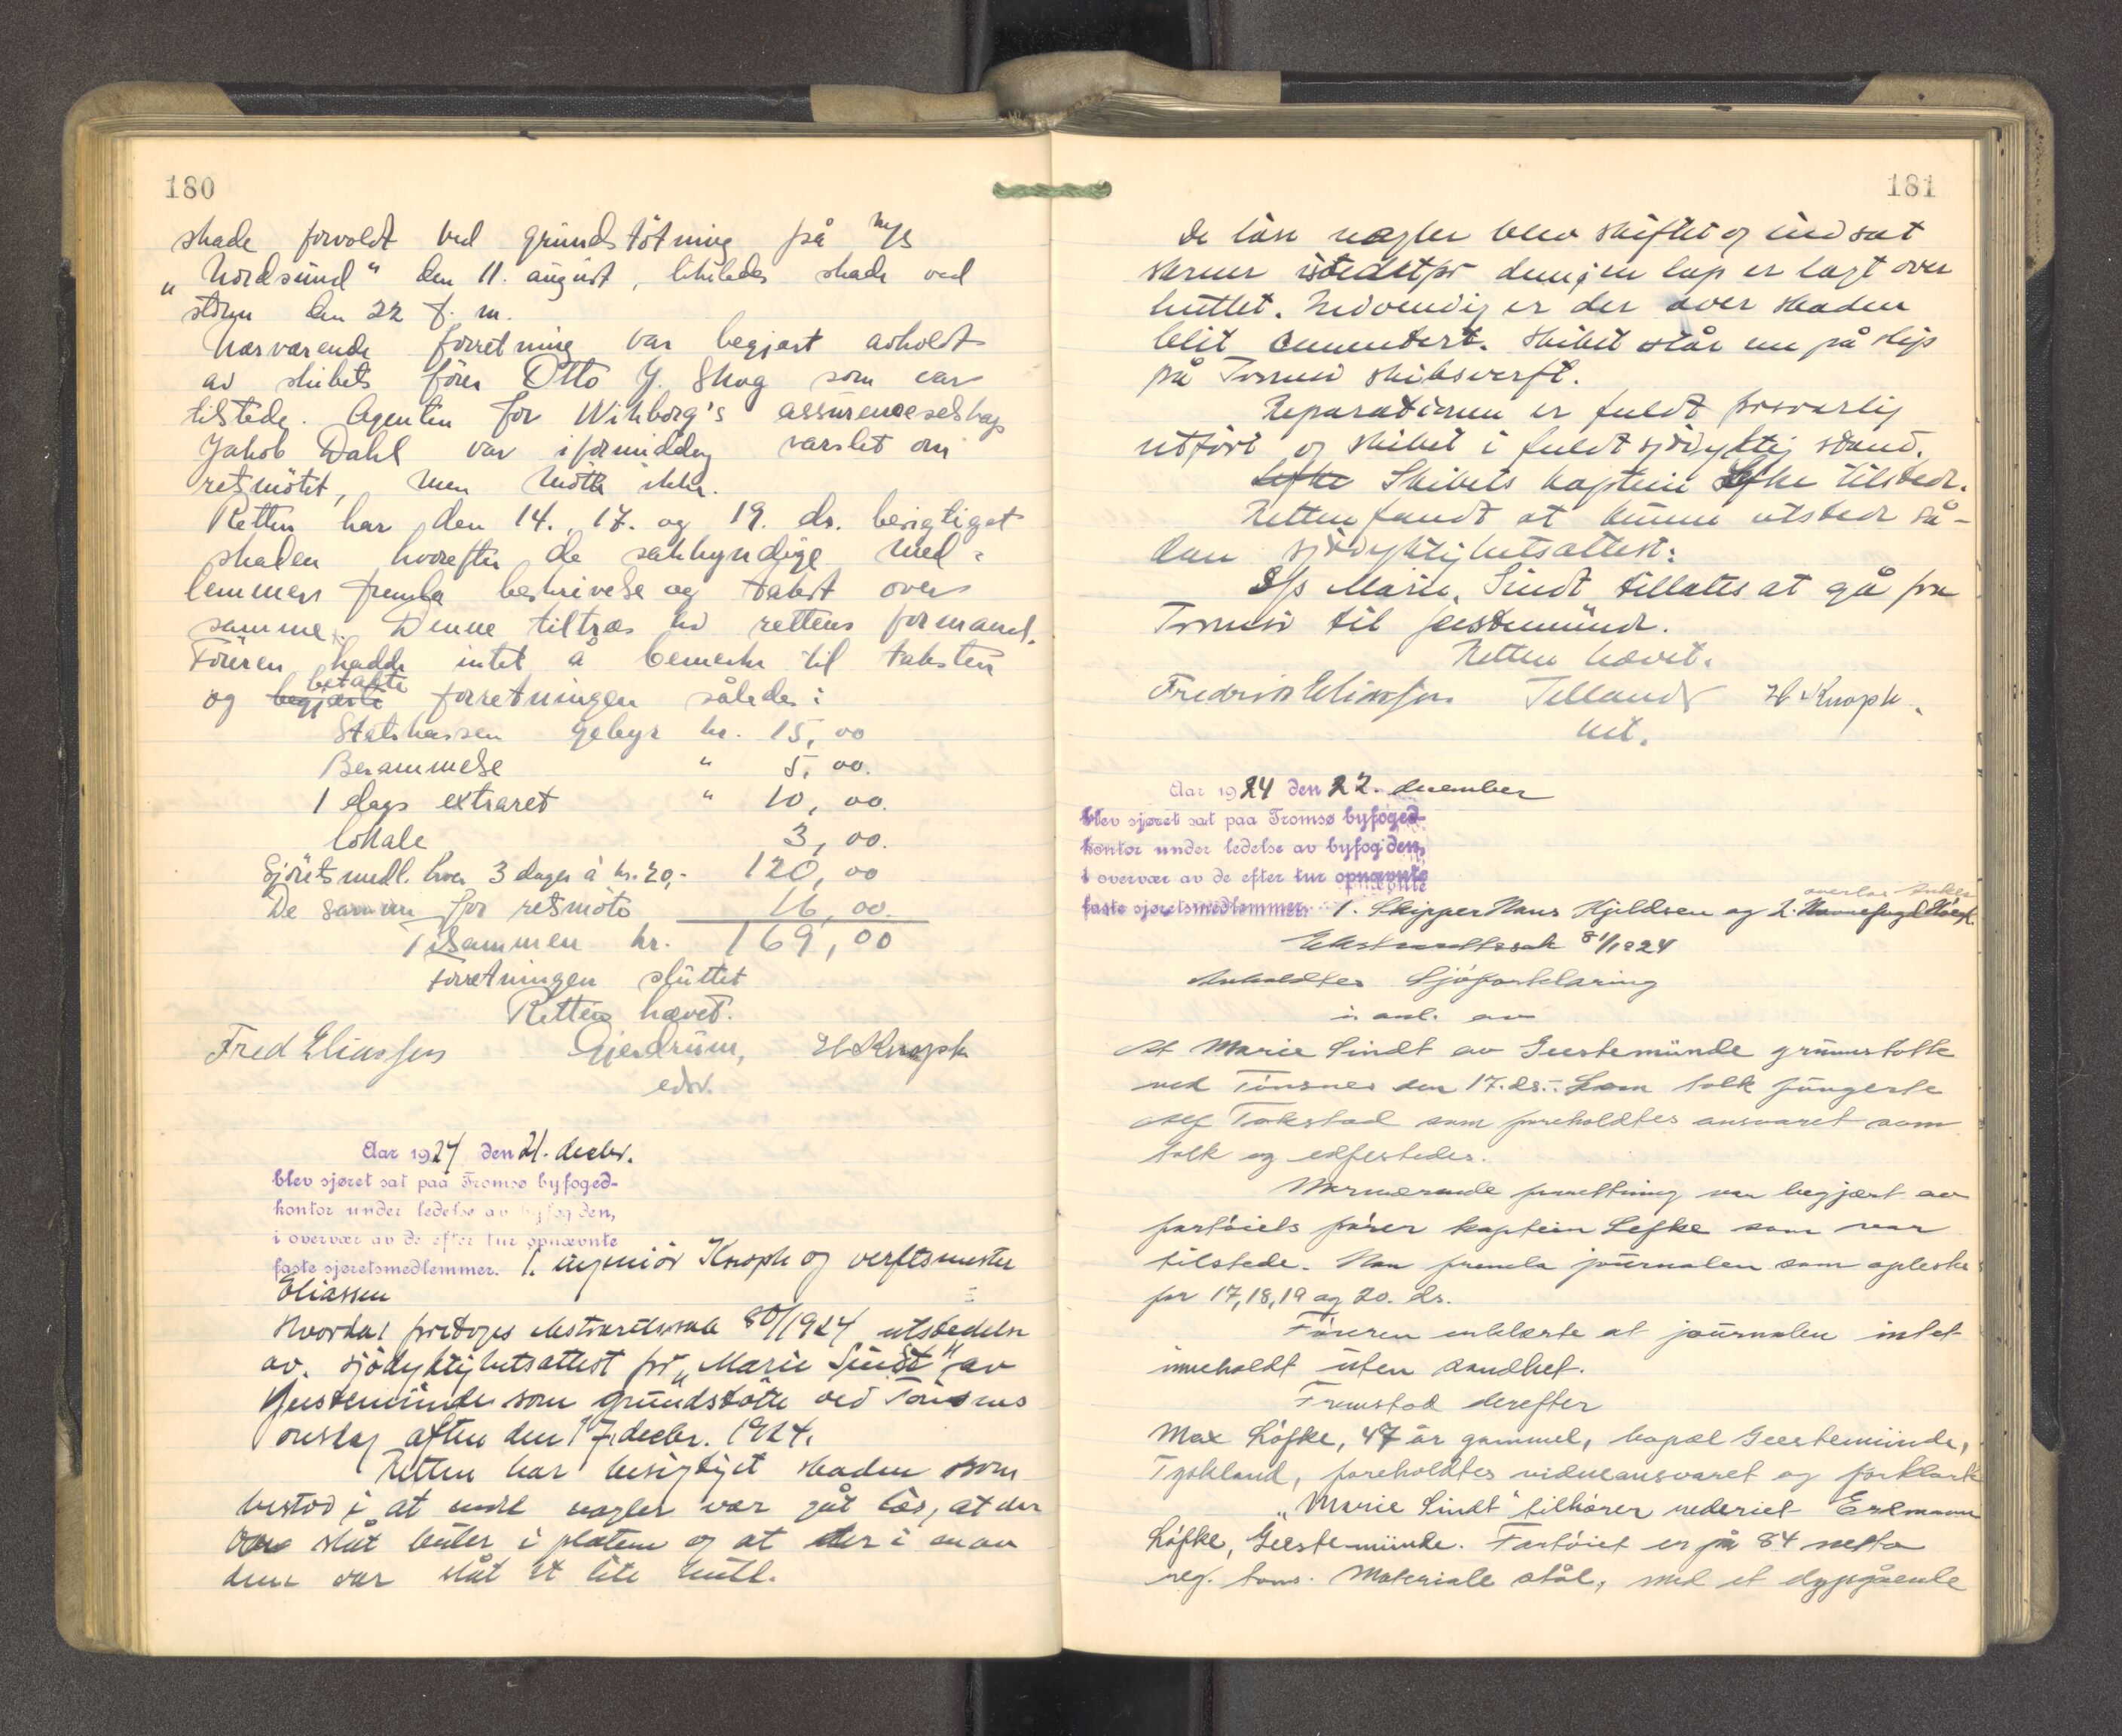 180
skade forvoldt ved grundstøtning på m/s
„Nordsund" den 11. august, likeledes skade ved
storm den 22 f. m.
Nærværende forretning var begjært avholdt
av skibets fører Otto J. Skog som var
tilstede. Agenten for Wihborg's assuranceselskap
Jakob Dahl var i formiddag varslet om
retsmøtet, men møtte ikke.
Retten har den 14., 17. og 19. ds. besigtiget
skaden hvorefter de sakkyndige med-
lemmer fremla beskrivelse og takst over
samme. Denne tiltræs av rettens formand.
Føreren hadde intet å bemerke til taksten
og betalte forretningen således:
Statskassen gebyr kr. 15,00
Berammelse " 5,00.
1 dags extraret " 10,00.
Lokale 3,00.
Sjøretsmedl. hver 3 dager à kr. 20,- 120,00
De samme for retsmøte 16,00.
Tilsammen kr. 169,00
Forretningen sluttet
Retten hævet.
Fred Eliassen Gjerdrum, H Knoph
edsv.
Aar 1924 den 21. decbr.
blev sjøret sat paa Tromsø byfoged-
kontor under ledelse av byfogden,
i overvær av de efter tur opnævnte
faste sjøretsmedlemmer. 1. ingeniør Knoph og verftsmester
Eliassen
Hvorda foretoges ekstraretssak 80/1924 utstedelse
av sjødyktighetsattest for „Marie Sindt" av
Geestemünde som grundstøtte ved Tønsnes
onsdag aften den 17. decbr. 1924.
Retten har besigtiget skaden som
bestod i at endel nagler var gåt løs, at der
var slåt buler i platene og at der i en av
dem var slåt et lite hull.
181
De løse nagler blev skiftet og indsat
skruer istedetfor dem; en lap er lagt over
hullet. Indvendig er der over skaden
blit cementert. Skibet står nu på slip
på Tromsø skibsverft.
Reparationen er fuldt forsvarlig
utført og skibet i fuldt sjødyktig stand.
Skibets kaptein Lefke tilstede.
Retten fandt at kunne utstede så-
dan sjødyktighetsattest:
S/s Marie Sindt tillates at gå fra
Tromsø til Geestemünde.
Retten hævet.
Fredrik Eliassen Telland H Knoph.
kst.
Aar 1924 den 22. december
blev sjøret sat paa Tromsø byfoged-
kontor under ledelse av byfogden,
i overvær av de efter tur opnævnte
faste sjøretsmedlemmer. 1. Skipper Hans Kjeldsen og 2.
Ekstraretssak 81/1924
Anholdtes Sjøforklaring
i anl. av
at Marie Sindt av Geestemünde grundstøtte
ved Tønsnes den 17. ds. Som tolk fungerte
Alf Tokstad som foreholdtes ansvaret som
tolk og edfestedes.
Nærværende forretning var begjært av
fartøiets fører kaptein Lefke som var
tilstede. Han fremla journalen som oplestes
for 17, 18, 19 og 20. ds.
Føreren erklærte at journalen intet
inneholdt uten sandhet.
Fremstod derefter
Max Løfke, 47 år gammel, bopæl Geestemünde,
Tyskland, foreholdtes vidneansvaret og forklarte
„Marie Sindt" tilhører rederiet Erlmann
Løfke, Geestemünde. Fartøiet er på 84 netto
reg. tons. Materiale stål, med et dypgående